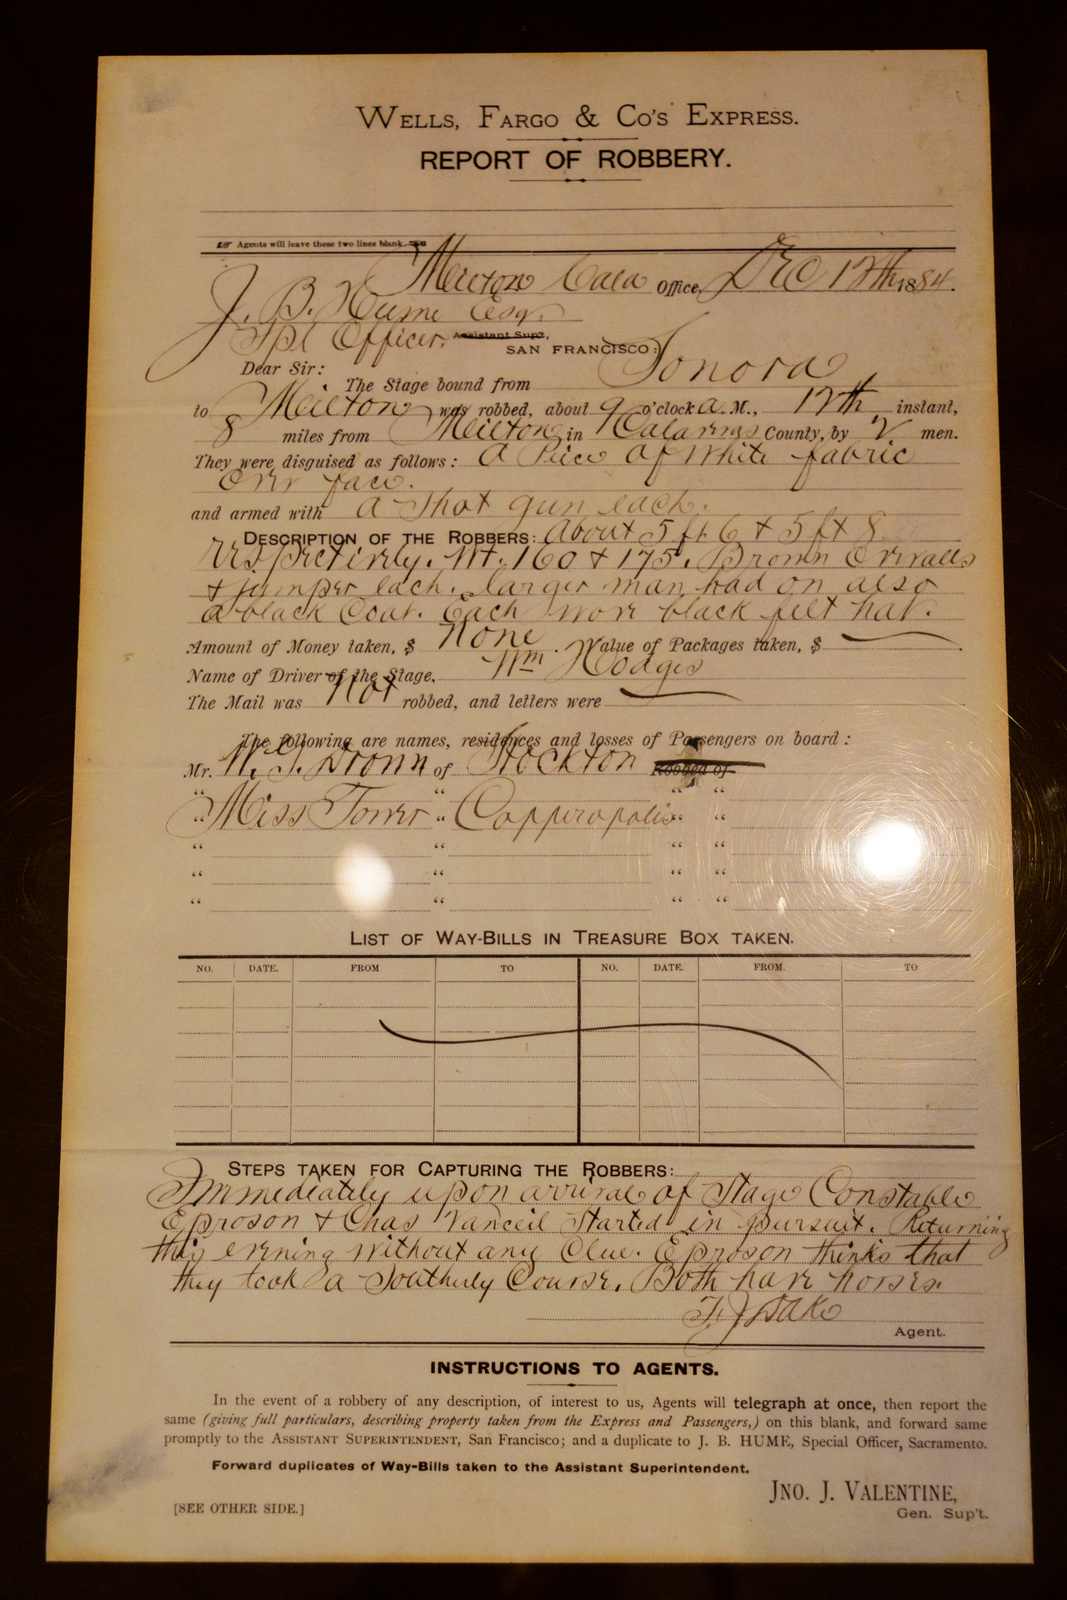 WELLS, FARGO & CO'S EXPRESS.
REPORT OF ROBBERY.
Agents will leave these two lines blank.
Milton Cala Office, Dec 12th 1884.
J. B. Hume Esqr.
Spl Officer. Assistant Sup't,
SAN FRANCISCO:
Dear Sir:
The Stage bound from Sonora
to Milton was robbed, about 9 o'clock a. M., 12th instant,
8 miles from Milton in Calavras County, by 2 men.
They were disguised as follows: a Piece of White fabric
over face.
and armed with a Shot gun each.
DESCRIPTION OF THE ROBBERS: About 5 ft 6 & 5 ft 8
respectively. Wt. 160 & 175. Brown Overalls
& jumper each. larger man had on also
a black Coat. Each wore black felt hat.
Amount of Money taken, $ None. Value of Packages taken, $
Name of Driver of the Stage, Wm Hodges
The Mail was Not robbed, and letters were
The following are names, residences and losses of Passengers on board:
Mr. W. G. Brown of Stockton Robbed of
" Miss Tower " Copperopolis " "
" " " "
" " " "
" " " "
LIST OF WAY-BILLS IN TREASURE BOX TAKEN.
NO. DATE. FROM TO NO. DATE. FROM. TO
STEPS TAKEN FOR CAPTURING THE ROBBERS:
Immediately upon arrival of Stage Constable
Eproson & Chas Vanceil Started in pursuit. Returning
this evening without any Clue. Eproson thinks that
they took a Southerly Course. Both have horses.
F. J. Dake
Agent.
INSTRUCTIONS TO AGENTS.
In the event of a robbery of any description, of interest to us, Agents will telegraph at once, then report the
same (giving full particulars, describing property taken from the Express and Passengers,) on this blank, and forward same
promptly to the ASSISTANT SUPERINTENDENT, San Francisco; and a duplicate to J. B. HUME, Special Officer, Sacramento.
Forward duplicates of Way-Bills taken to the Assistant Superintendent.
JNO. J. VALENTINE,
[SEE OTHER SIDE.] Gen. Sup't.